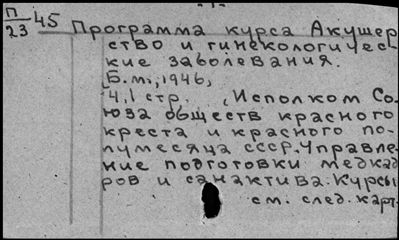 П
23 45 Программа курса Акушер
ство и гинекологичес-
кие заболевания.
Б.м., 1946,
4,1 стр. (Исполком Со-
юза обществ красного
креста и красного по-
лумесяца СССР. Управле-
ние подготовки медкад
ров и санактива. Курсы
см. след. карт.